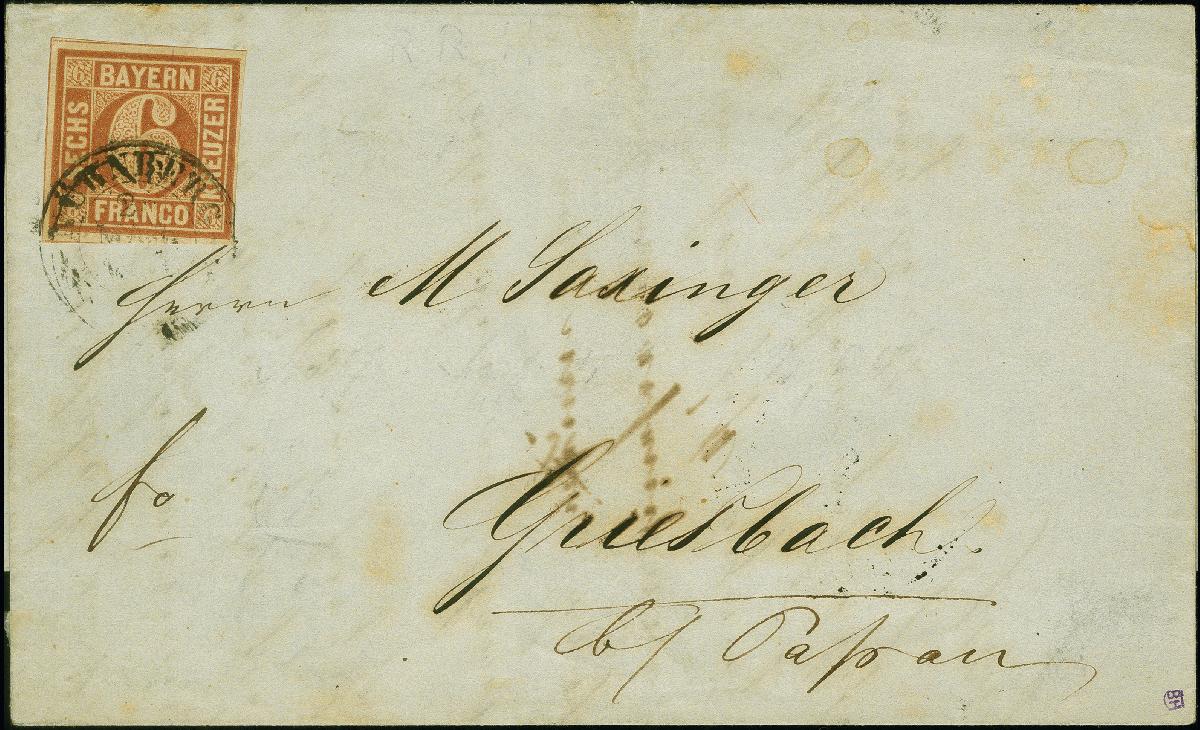 6 BAYERN 6
SECHS
6
KREUZER
FRANCO
NÜRNBERG
2
Herrn M Saxinger
fo
Griesbach
b/ Paßau
BH